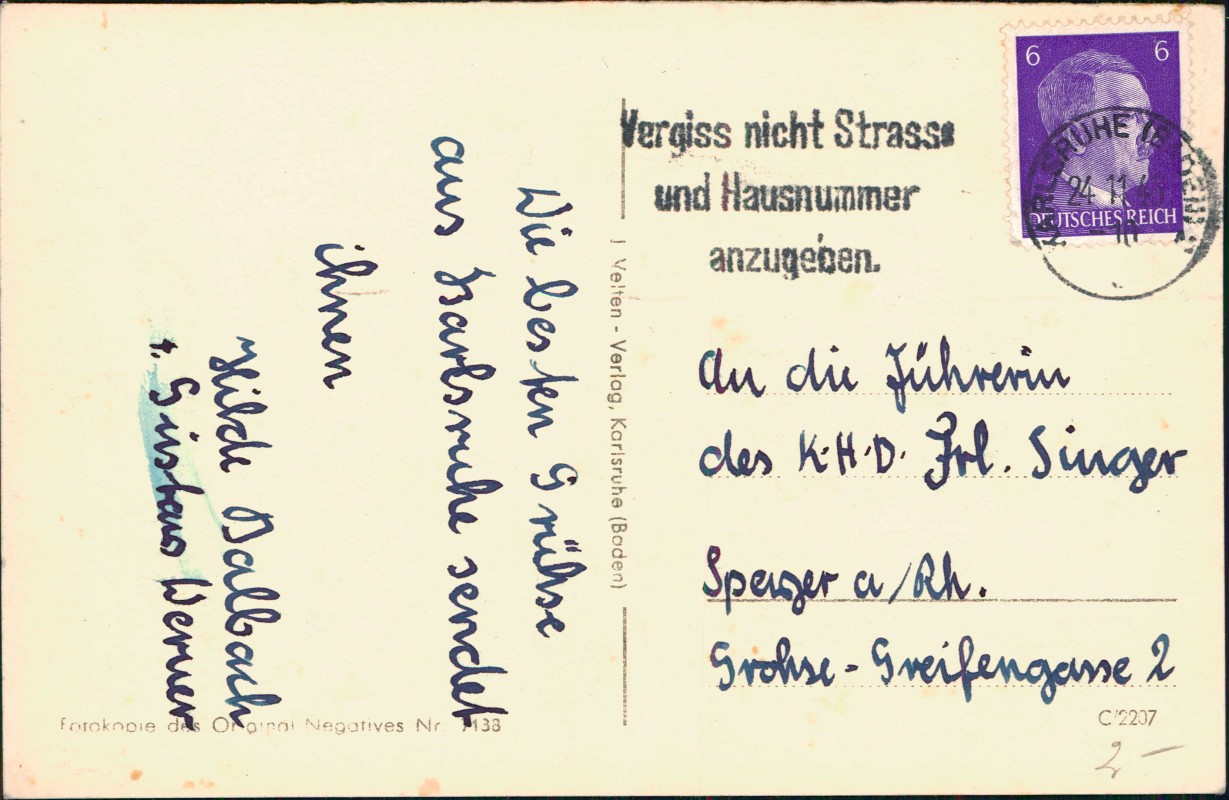 Die besten Grühse
aus Karlsruhe sendet
ihnen
Hilde Dalbach
Gustav Werner
J Velten - Verlag, Karlsruhe (Baden)
Fotokopie des Original Negatives Nr. 1138
Vergiss nicht Strasse
und Hausnummer
anzugeben.
6 6
DEUTSCHES REICH
KARLSRUHE (BADEN)
24.11.4
10
An die Führerin
des K.H.D. Frl. Singer
Speyer a/Rh.
Grohse-Greifengasse 2
C/2207
2-